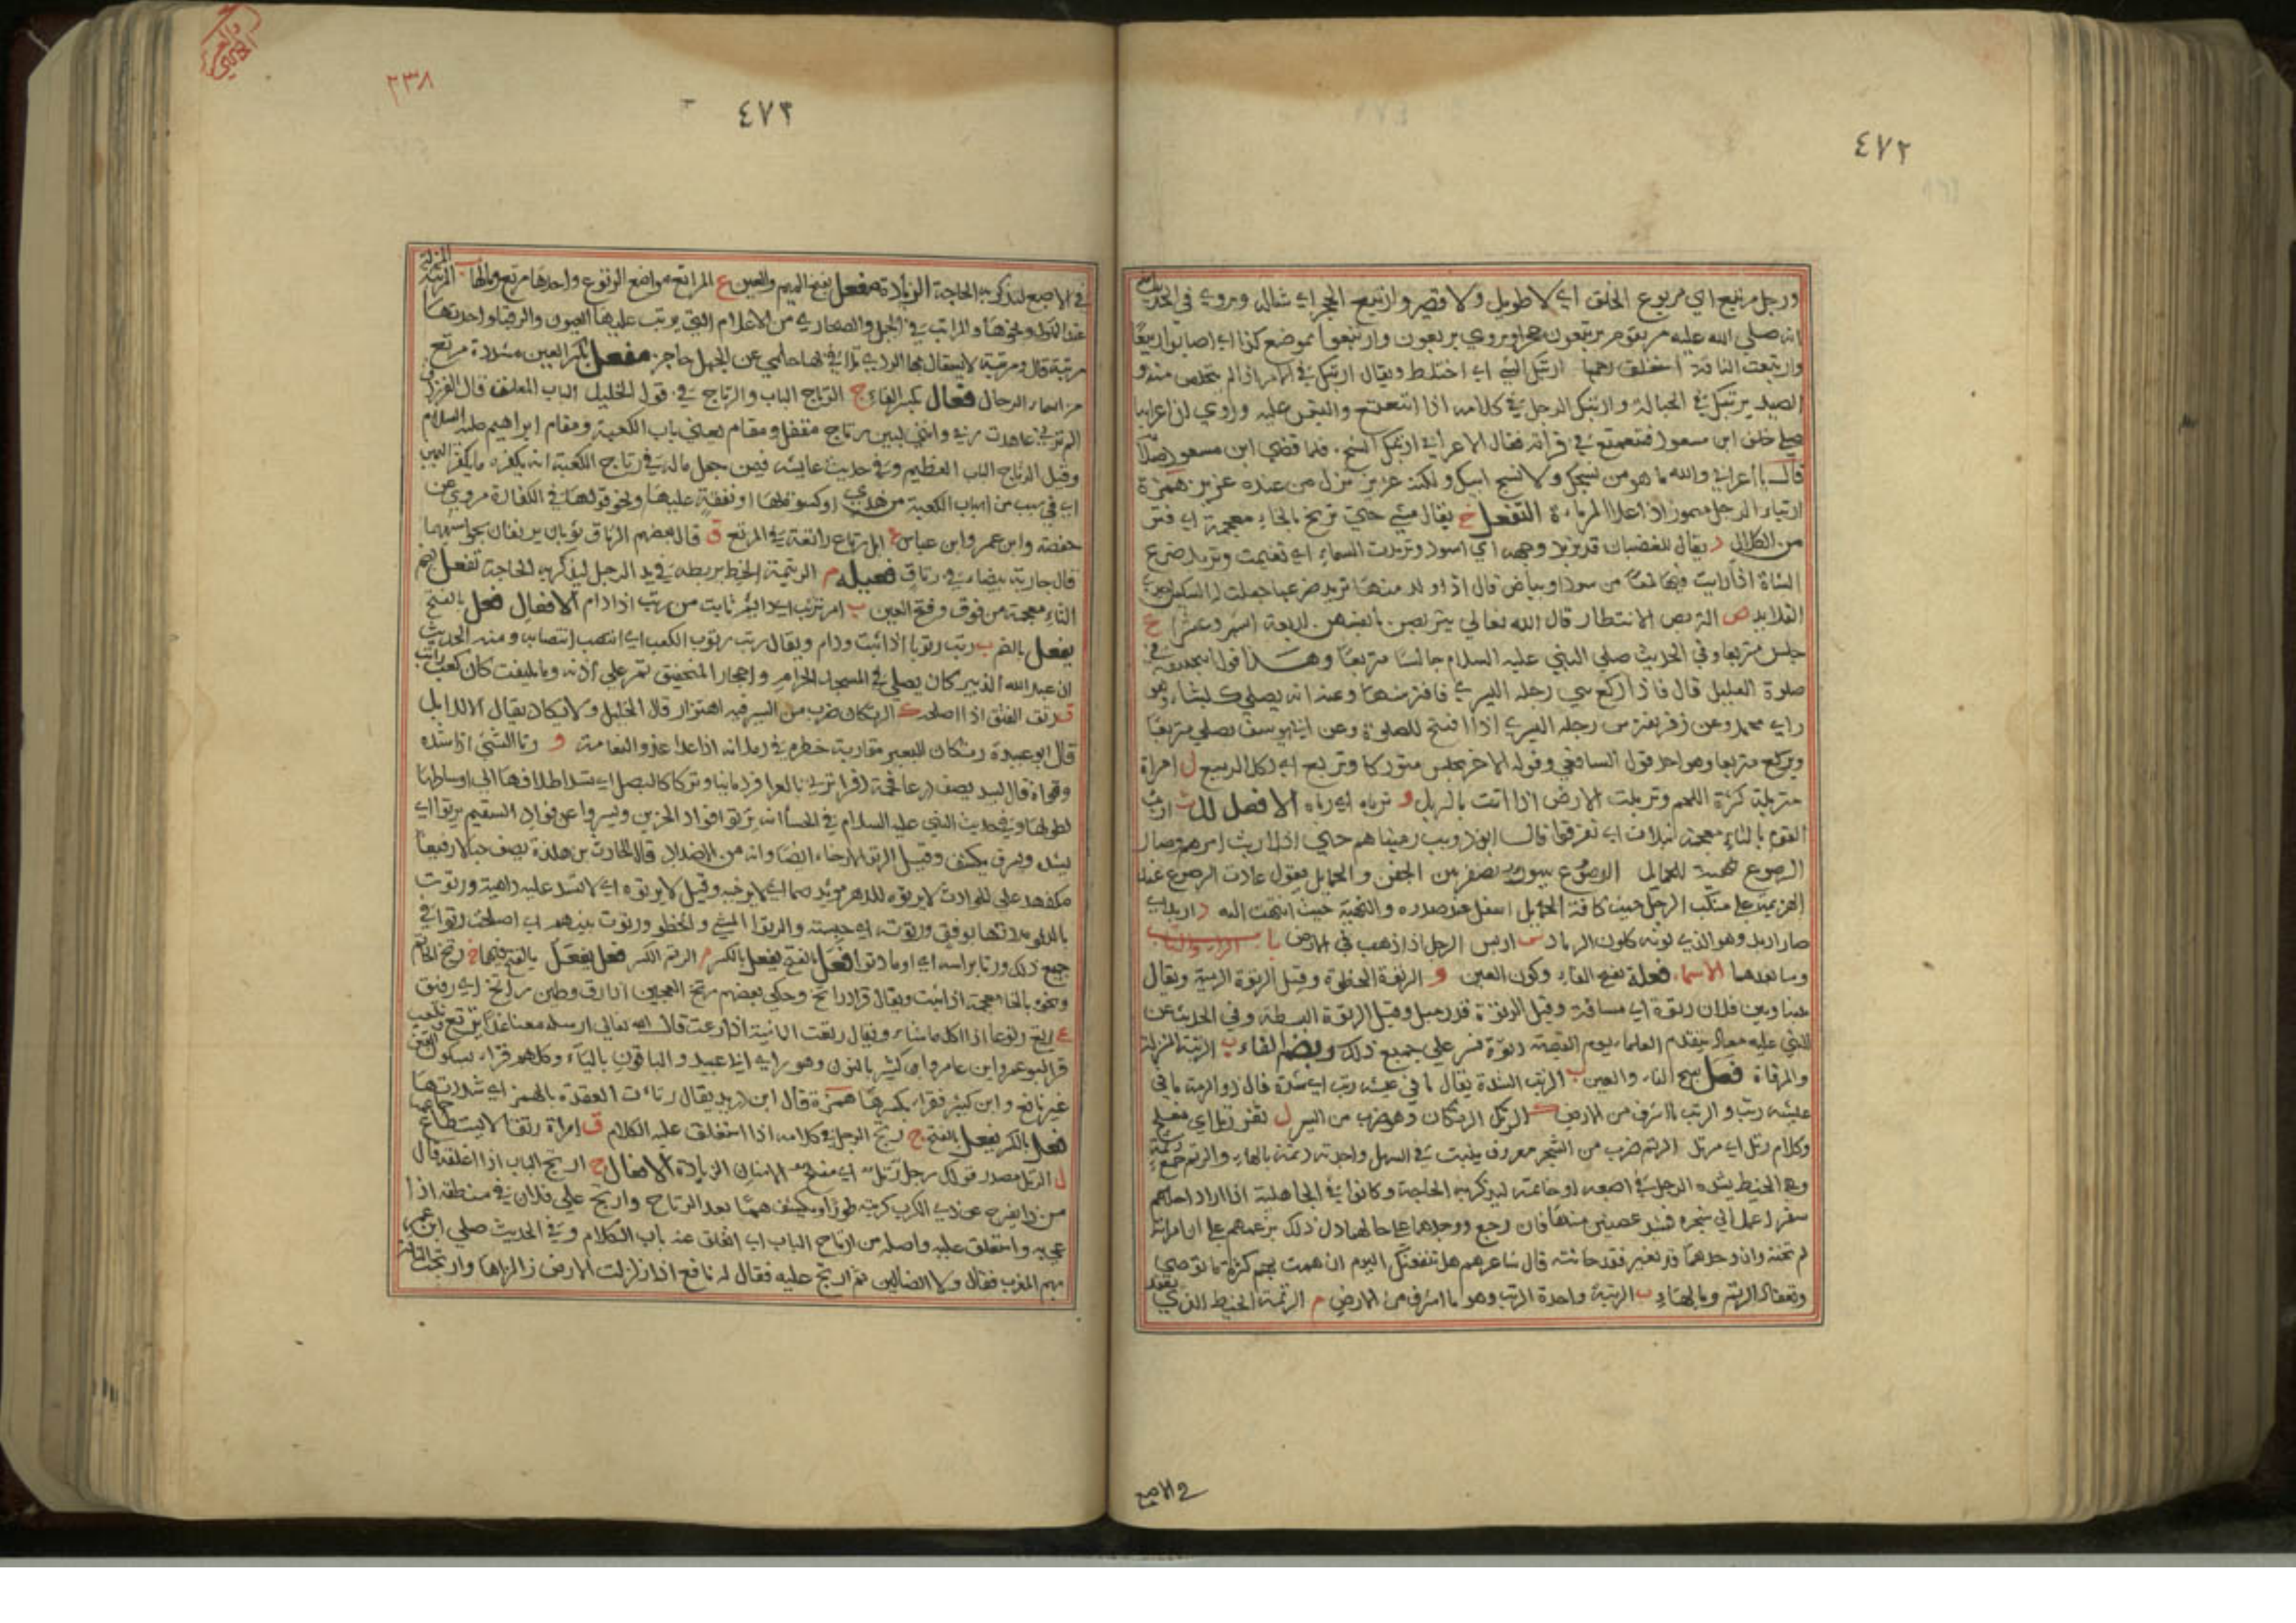 ٤٧٢
ورجل مرتبع اي مربوع الخلق اي لا طويل ولا قصير وارتبع الحجر اي شاله ويروى في الحديث
انه صلى الله عليه مر بقوم يرتبعون حجرا ويروى يربعون وارتبعوا بموضع كذا اي اصابوا ربيعًا
وارتبعت الناقة استغلق رحمها ارتبك الشي اي اختلط ويقال ارتبك في الامر اذا لم يتخلص منه و
الصيد يرتبك في الحبالة وارتبك الرجل في كلامه اذا تتعتع والتبس عليه وروي ان اعرابيا
صلى خلف ابن مسعود فتعتع في قراته فقال الاعرابي ارتبك الشيخ فلما قضى ابن مسعود صلاته
قال يا اعرابي والله ما هو من نسجك ولا نسج ابيك ولكنه عزيز نزل من عند عزيز همزة
ارتبا الرجل مهموز اذا علا المرباة التفعل خ يقال مشى حتى تربخ بالخاء معجمة اي فتر
من الكلال د يقال للغضبان قد تربد وجهه اي اسود وتربدت السماء اي تغيمت وتربد ضرع
الشاة اذا رايت فيها لمعًا من سواد وبياض قال اذا والد منها تربد ضرعها جعلت لها السكين احدى
القلايد ص التربص الانتظار قال الله تعالى يتربصن بانفسهن اربعة اشهر وعشرا ع
جلس متربعا وفي الحديث صلى النبي عليه السلام جالسًا متربعًا وهذا قول ابي حنيفة في
صلوة العليل قال فاذا ركع ثنى رجله اليسرى فافترشها وعنه انه يصلي كيف شاء وهو
راي محمد وعن زفر يفترش رجله اليسرى اذا افتتح للصلوة وعن ابي يوسف يصلي متربعًا
ويركع متربعا وهو احد قول الشافعي وقوله الاخر يجلس متوركا وتربع اي اكل الربيع ل امراة
متربلة كثيرة اللحم وتربلت الارض اذا اتت بالربل و ترباه اي رباه الافعلال ث اربث
القوم بالثاء معجمة بثلاث اي تفرقوا قال ابو ذويب رميناهم حتى اذا اربث امرهم وصار
الرصوع نهية للحمايل الرصوع سيور تضفر بين الجفن والحمايل يقول عادت الرصوع عند
الهزيمة على منكب الرجل حيث كانت الحمايل اسفل عند صدره والنهية حيث انتهت اليه د اربد اي
صار اربد وهو الذي لونه كلون الرماد س اربس الرجل اذا ذهب في الارض باب الراء والتاء
وما بعدهما الاسماء فعلة بفتح الفاء وسكون العين و الرتوة الخطوة وقيل الرتوة الرمية ويقال
بيننا وبين فلان رتوة اي مسافة وقيل الرتوة قدر ميل وقيل الرتوة البسطة وفي الحديث عن
النبي عليه معاذ يتقدم العلماء يوم القيمة رتوة فسر على جميع ذلك وبضم الفاء ب الرتبة المنزلة
والمرقاة فعل بفتح الفاء والعين ب الرتب الشدة يقال ما في عيشه رتب اي شدة قال ذو الرمة ما في
عيشه رتب والرتب ما اشرف من الارض ك الرتك الرتكان وهو ضرب من السير ل ثغر رتل اي مفلج
وكلام رتل اي مرتل الرتم ضرب من الشجر معروف ينبت في السهل واحدته رتمة بالهاء والرتم جمع رتمة
وهي الخيط يشده الرجل في اصبعه او خاتمه ليذكر به الحاجة وكانوا في الجاهلية اذا اراد احدهم
سفرا عمل الى شجرة فشد غصنين منها فان رجع ووجدهما على حالهما دل ذلك بزعمهم على ان امراته
لم تخنه وان وجدهما قد تغير فقد خانته قال شاعرهم هل ينفعنك اليوم ان همت بهم كثرة ما توصي
وتعقاد الرتم وبالهاء ب الرتبة واحدة الرتب وهو ما اشرف من الارض م الرتمة الخيط الذي يعقد
في الاصبع
٤٧٣
٢٣٨
في الاصبع لتذكر به الحاجة الزيادة مفعل بفتح الميم والعين ع المراتع مواضع الرتوع واحدها مرتع وبالها ب المرتبة المنزلة
عند الملوك ونحوها والمراتب في الجبل والصحارى من الاعلام التي يرتب عليها العيون والرقبا واحدتها
مرتبة قال ومرتبة لا يستقال بها الردى تلافى بها حلمي عن الجهل حاجز مفعل بكسر العين مشددة مرتع
من اسماء الرجال فعال بكسر الفاء ج الرتاج الباب والرتاج في قول الخليل الباب المغلق قال الفرزدق
الم ترني عاهدت ربي وانني لبين رتاج مقفل ومقام يعني باب الكعبة ومقام ابراهيم عليه السلام
وقيل الرتاج الباب العظيم وفي حديث عايشه فيمن جعل ماله في رتاج الكعبة انه يكفره ما يكفر اليمين
اي في سبب من اسباب الكعبة من هدي او كسوتها او نفقة عليها ونحو قولها في الكفارة مروي عن
حفصة وابن عمر وابن عباس ع ابل رتاع راتعة في المرتع ق قال بعضهم الرتاق ثوبان يرتقان بحواشيهما
قال جارية بيضاء في رتاق فعيلة م الرتيمة الخيط يربطه في يد الرجل ليذكر به الحاجة تفعل بضم
التاء معجمة من فوق وفتح العين ب امر ترتب اي دايم ثابت من رتب اذا دام الافعال فعل بالفتح
يفعل بالضم ب رتب رتوبا اذا ثبت ودام ويقال رتب رتوب الكعب اي انتصب انتصابه ومنه الحديث
ان عبد الله الزبير كان يصلي في المسجد الحرام واحجار المنجنيق تمر على اذنه وما يلتفت كان كعب راتب
ق رتق الفتق اذا اصلحه ك الرتكان ضرب من السير فيه اهتزاز قال الخليل ولا يكاد يقال الا للابل
قال ابو عبيدة رتكان للبعير مقاربة خطوه في رملانه اذا عدا عدو النعامة و رتا الشئ اذا شده
وقواه قال لبيد يصف درعا فخمة ذفراء ترتى بالعرا قردمانيا وتركا كالبصل اي تشد اطرافها الى اوساطها
لطولها وفي حديث النبي عليه السلام في الحسا انه يرتو فواد الحزين ويسروا عن فواد السقيم يرتوا اي
يشد ويسرو يكشف وقيل الرتو الارخاء ايضا وانه من الاضداد قال الحارث بن حلزة يصف جبلا رفيعا
مكفهرا على الحوادث لا يرتوه للدهر مويد صماء اي لا يرخيه وقيل لا يرتوه اي لا تشتد عليه داهية ورتوت
بالدلو مددتها برفق ورتوت اي جبسته والرتوا المشي والخطو ورتوت بينهم اي اصلحت رتوا في
جميع ذلك ورتا براسه اي اوما رتوا فعل بالفتح يفعل بالكسر م الرتم الكسر فعل يفعل بالفتح فيهما خ رتخ الخاتم
ونحوه بالخاء معجمة اذا ثبت ويقال قراد راتخ وحكى بعضهم رتخ العجين اذا رق وطين راتخ اي رقيق
ع رتع رتوعا اذا اكل ما شاء ويقال رتعت الماشية اذا رعت قال الله تعالى ارسله معنا غدا يرتع ويلعب
قرا ابو عمرو وابن عامر وابن كثير بالنون وهو راي ابي عبيد والباقون بالياء وكلهم قراء بسكون العين
غير نافع وابن كثير فقراء بكسرها همزة قال ابن دريد يقال رتات العقدة بالهمز اي شددتها
فعل بالكسر يفعل بالفتح ج رتج الرجل في كلامه اذا استغلق عليه الكلام ق امراة رتقا لا يستطاع جماعها
ل الرتل مصدر قولك رجل رتل اي مفلج الاسنان الزيادة الافعال ج ارتج الباب اذا اغلقه قال
من ذا يفرج عن ذي الكرب كربته طورًا ويكشف همًا بعد ارتاج وارتج على فلان في منطقه اذا
عي به واستغلق عليه واصله من ارتاج الباب اي انغلق عنه باب الكلام وفي الحديث صلى ابن عمر
بهم المغرب فقال ولا الضالين ثم ارتج عليه فقال له نافع اذا زلزلت الارض زلزالها وارتجت الناقة